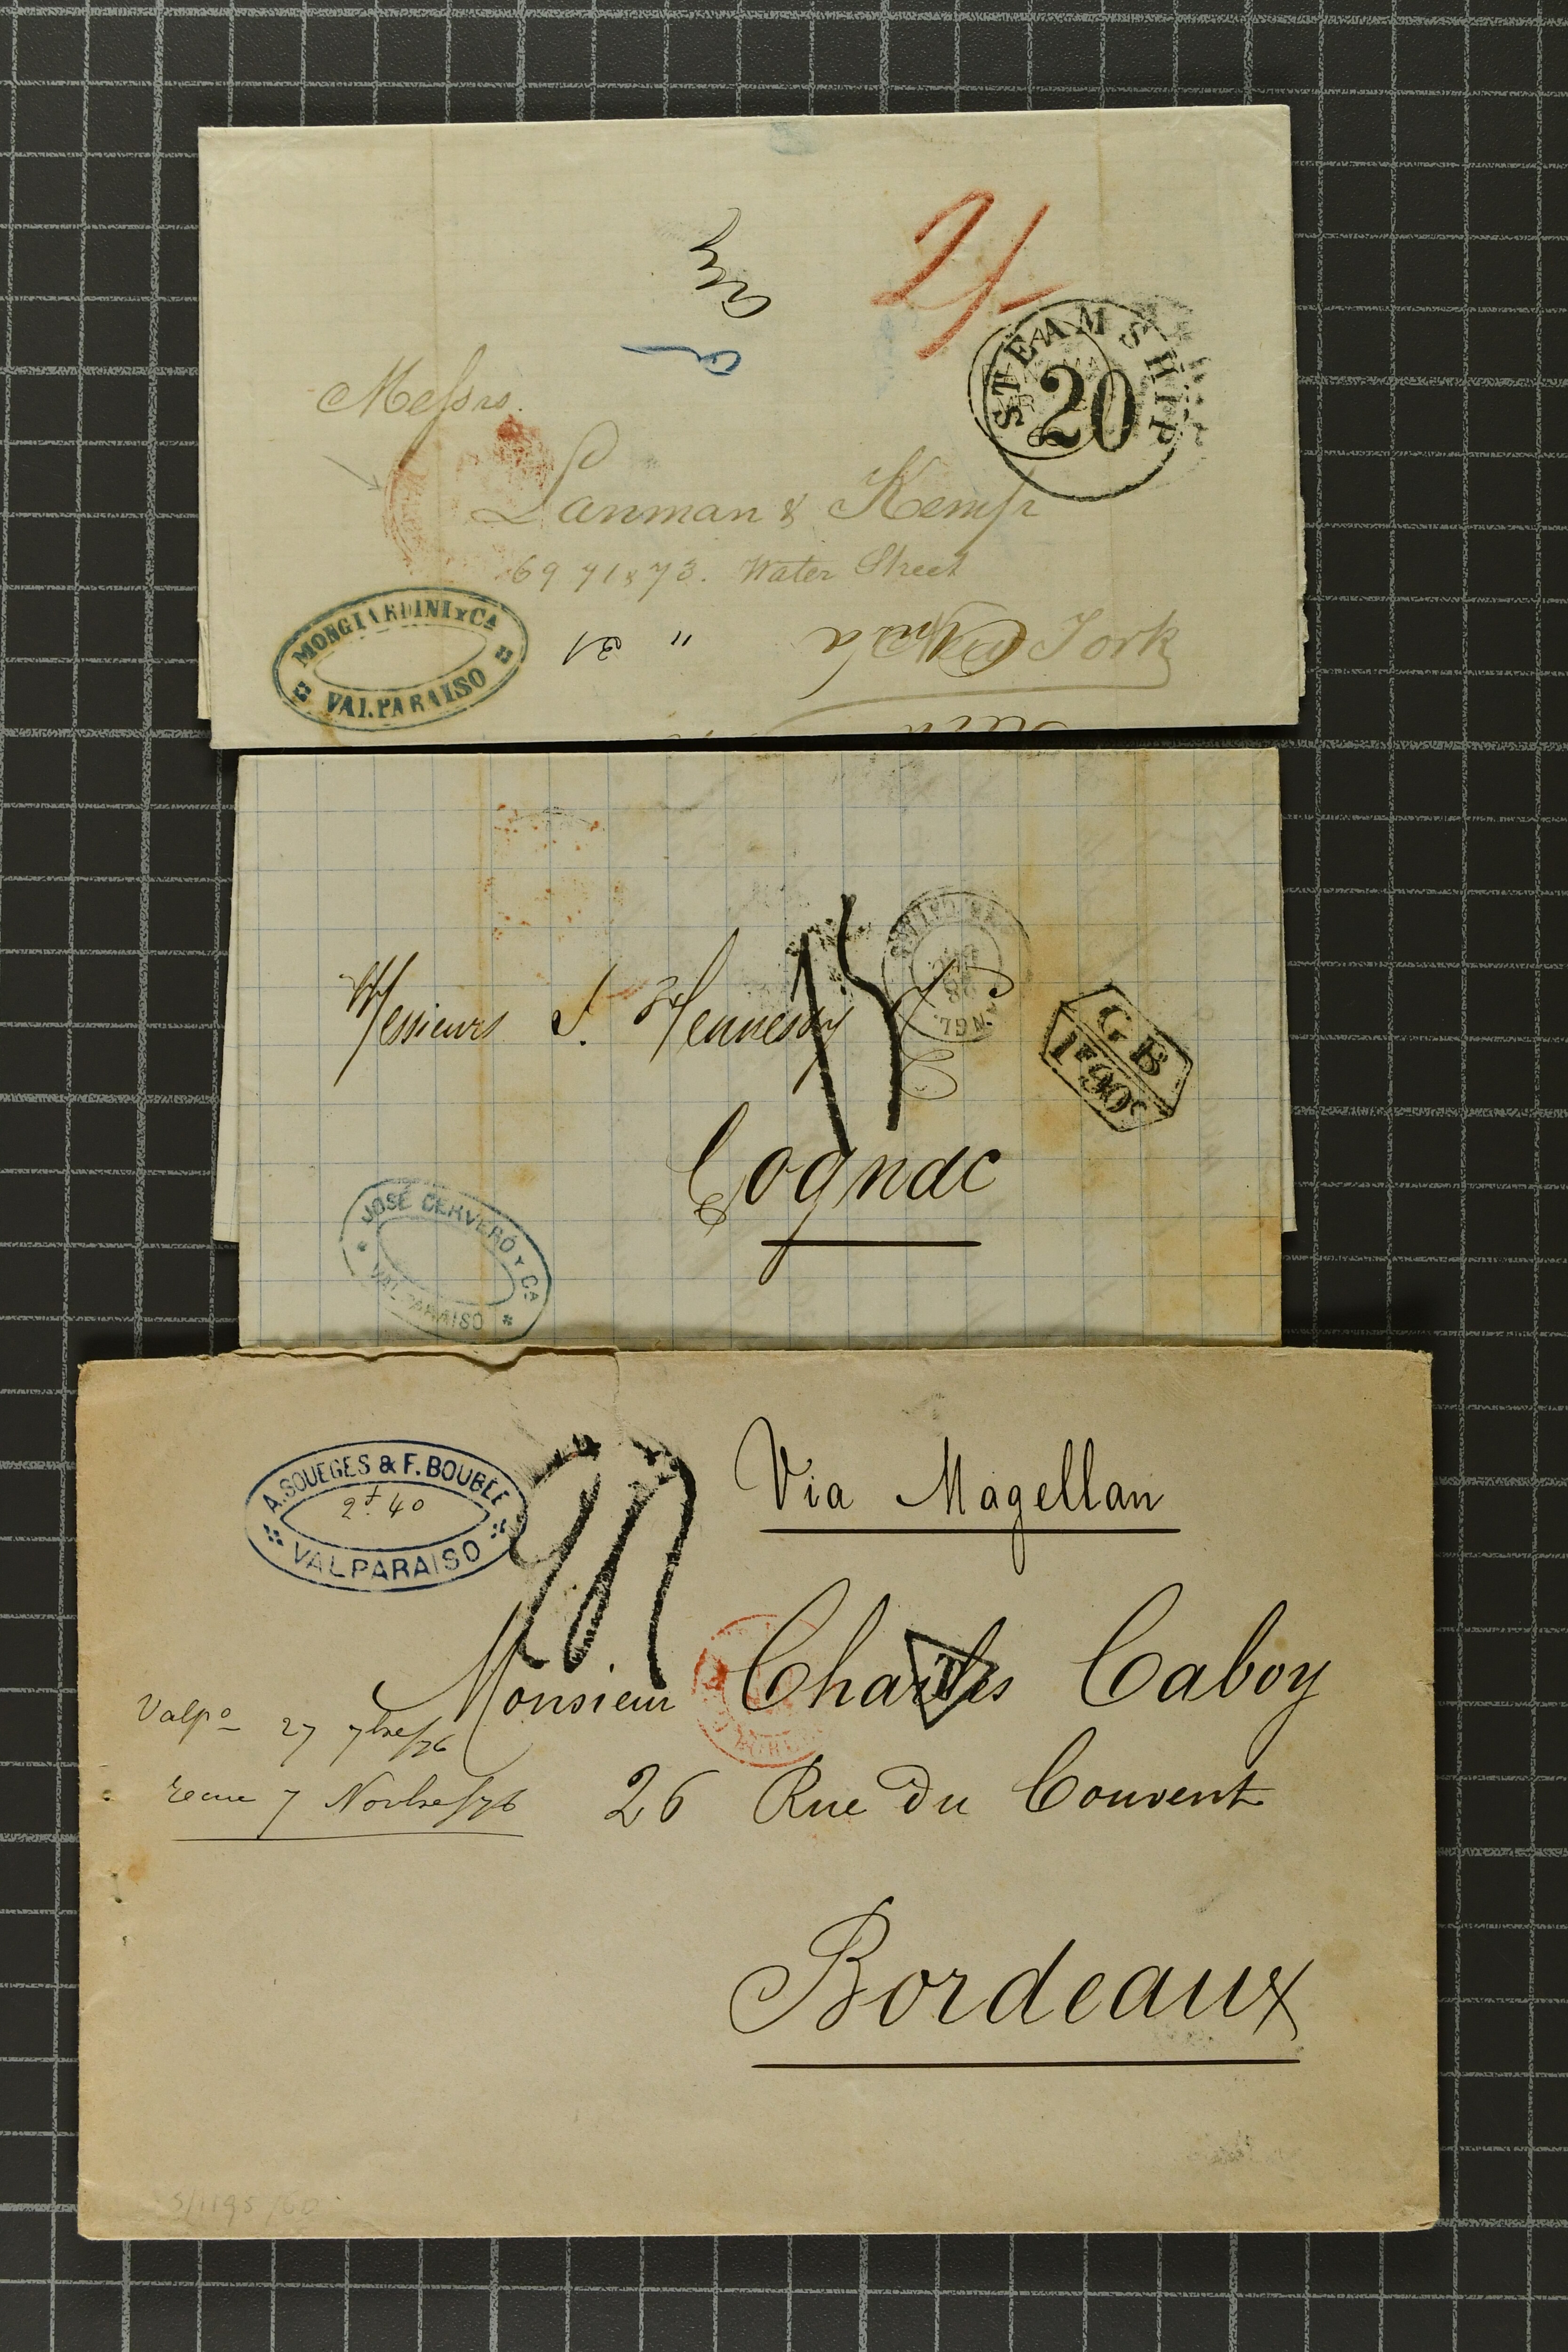 2/-
STEAMSHIP
20
Messrs.
Lanman & Kemp
69 71 & 73. Water Street
New York
MONGIARDINI Y CA
VALPARAISO
21 "
15
ANGL.
Messieurs J. Hennessy
GB
1F90c
Cognac
JOSÉ CERVERÓ Y CA
VALPARAISO
A. SOUEGES & F. BOUBÉE
2f. 40
VALPARAISO
Via Magellan
T
Monsieur Charles Caboy
Valpo 27 7bre/76
recue 7 Novbre/76
26 Rue du Couvent
Bordeaux
5/1195/60